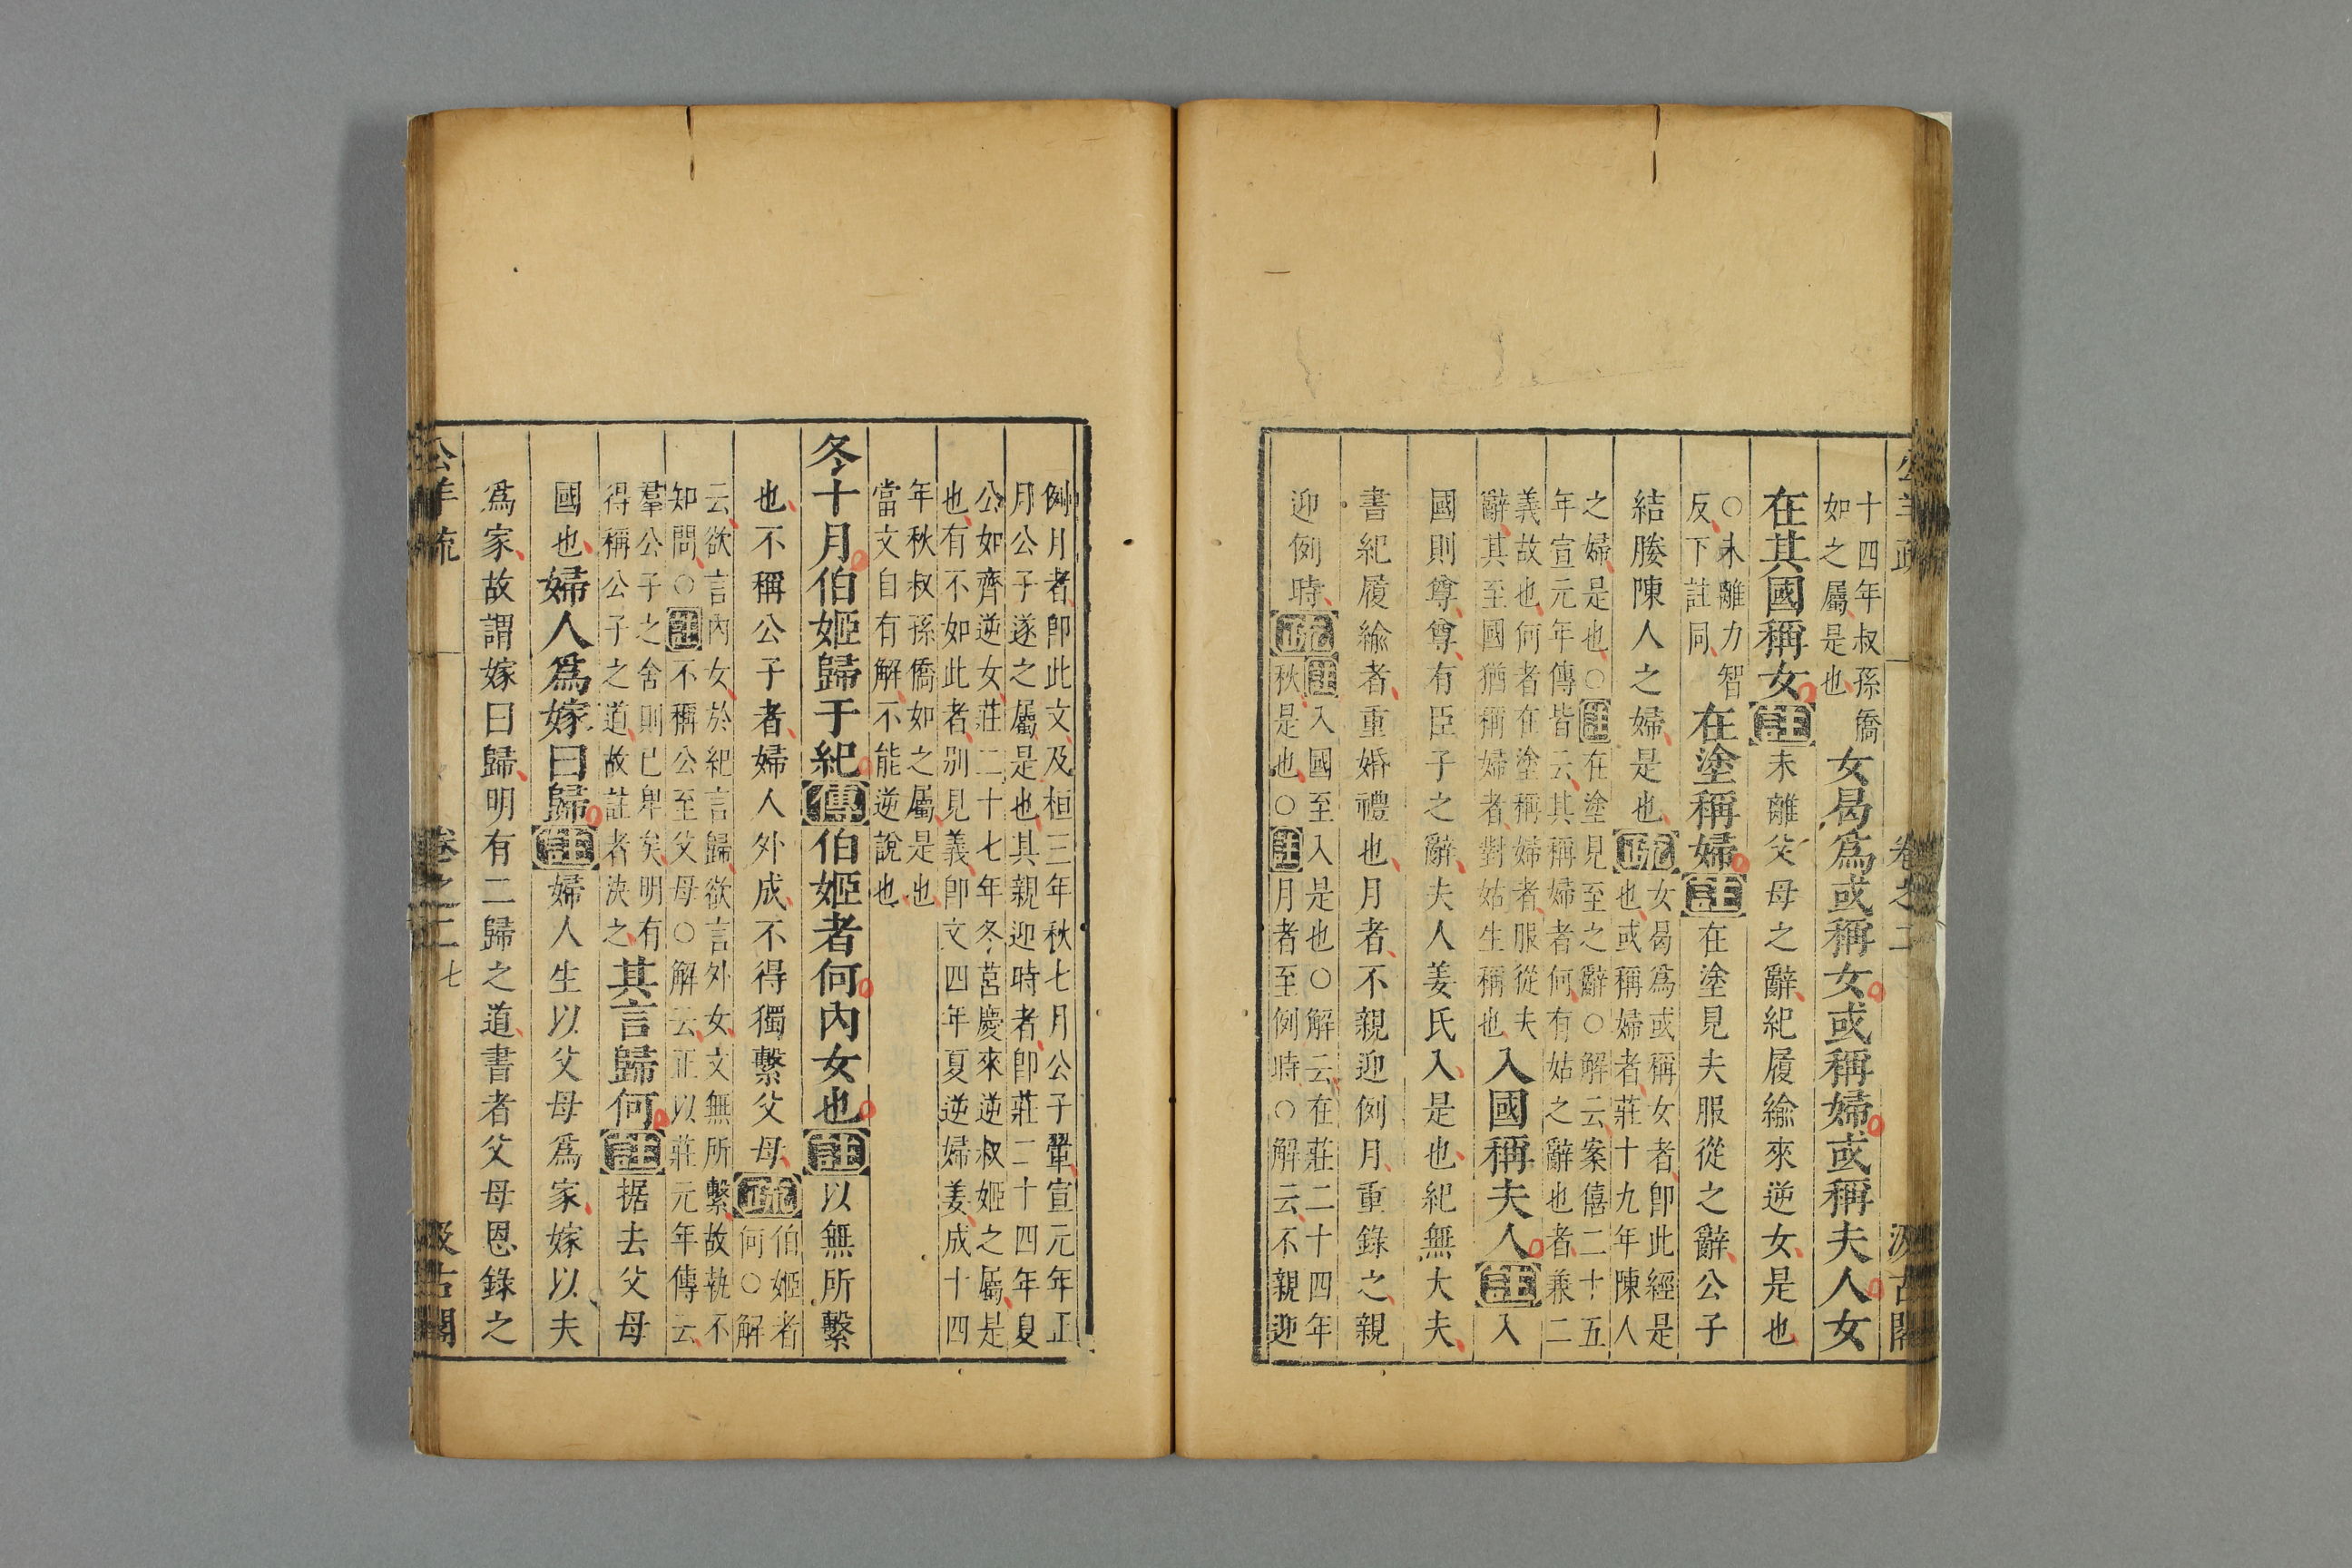 公羊疏 卷之二 汲古閣
十四年叔孫僑
如之屬是也 女曷爲或稱女或稱婦或稱夫人女
在其國稱女 註 未離父母之辭紀履緰來逆女是也
○未離力智
反下註同 在塗稱婦 註 在塗見夫服從之辭公子
結媵陳人之婦是也 疏 女曷爲或稱女者卽此經是
也或稱婦者莊十九年陳人
之婦是也○註在塗見至之辭○解云案僖二十五
年宣元年傳皆云其稱婦者何有姑之辭也者兼二
義故也何者在塗稱婦者服從夫
辭其至國猶稱婦者對姑生稱也 入國稱夫人 註 入
國則尊尊有臣子之辭夫人姜氏入是也紀無大夫
書紀履緰者重婚禮也月者不親迎例月重錄之親
迎例時 疏 註入國至入是也○解云在莊二十四年
秋是也○註月者至例時○解云不親迎
例月者卽此文及桓三年秋七月公子翬宣元年正
月公子遂之屬是也其親迎時者卽莊二十四年夏
公如齊逆女莊二十七年冬莒慶來逆叔姬之屬是
也有不如此者別見義卽文四年夏逆婦姜成十四
年秋叔孫僑如之屬是也
當文自有解不能逆說也
冬十月伯姬歸于紀 傳 伯姬者何內女也 註 以無所繫
也不稱公子者婦人外成不得獨繫父母 疏 伯姬者
何○解
云欲言內女於紀言歸欲言外女文無所繫故執不
知問○註不稱公至父母○解云正以莊元年傳云
羣公子之舍則已卑矣明有
得稱公子之道故註者決之 其言歸何 註 据去父母
國也婦人爲嫁曰歸 註 婦人生以父母爲家嫁以夫
爲家故謂嫁曰歸明有二歸之道書者父母恩錄之
公羊疏 卷之二 七 汲古閣